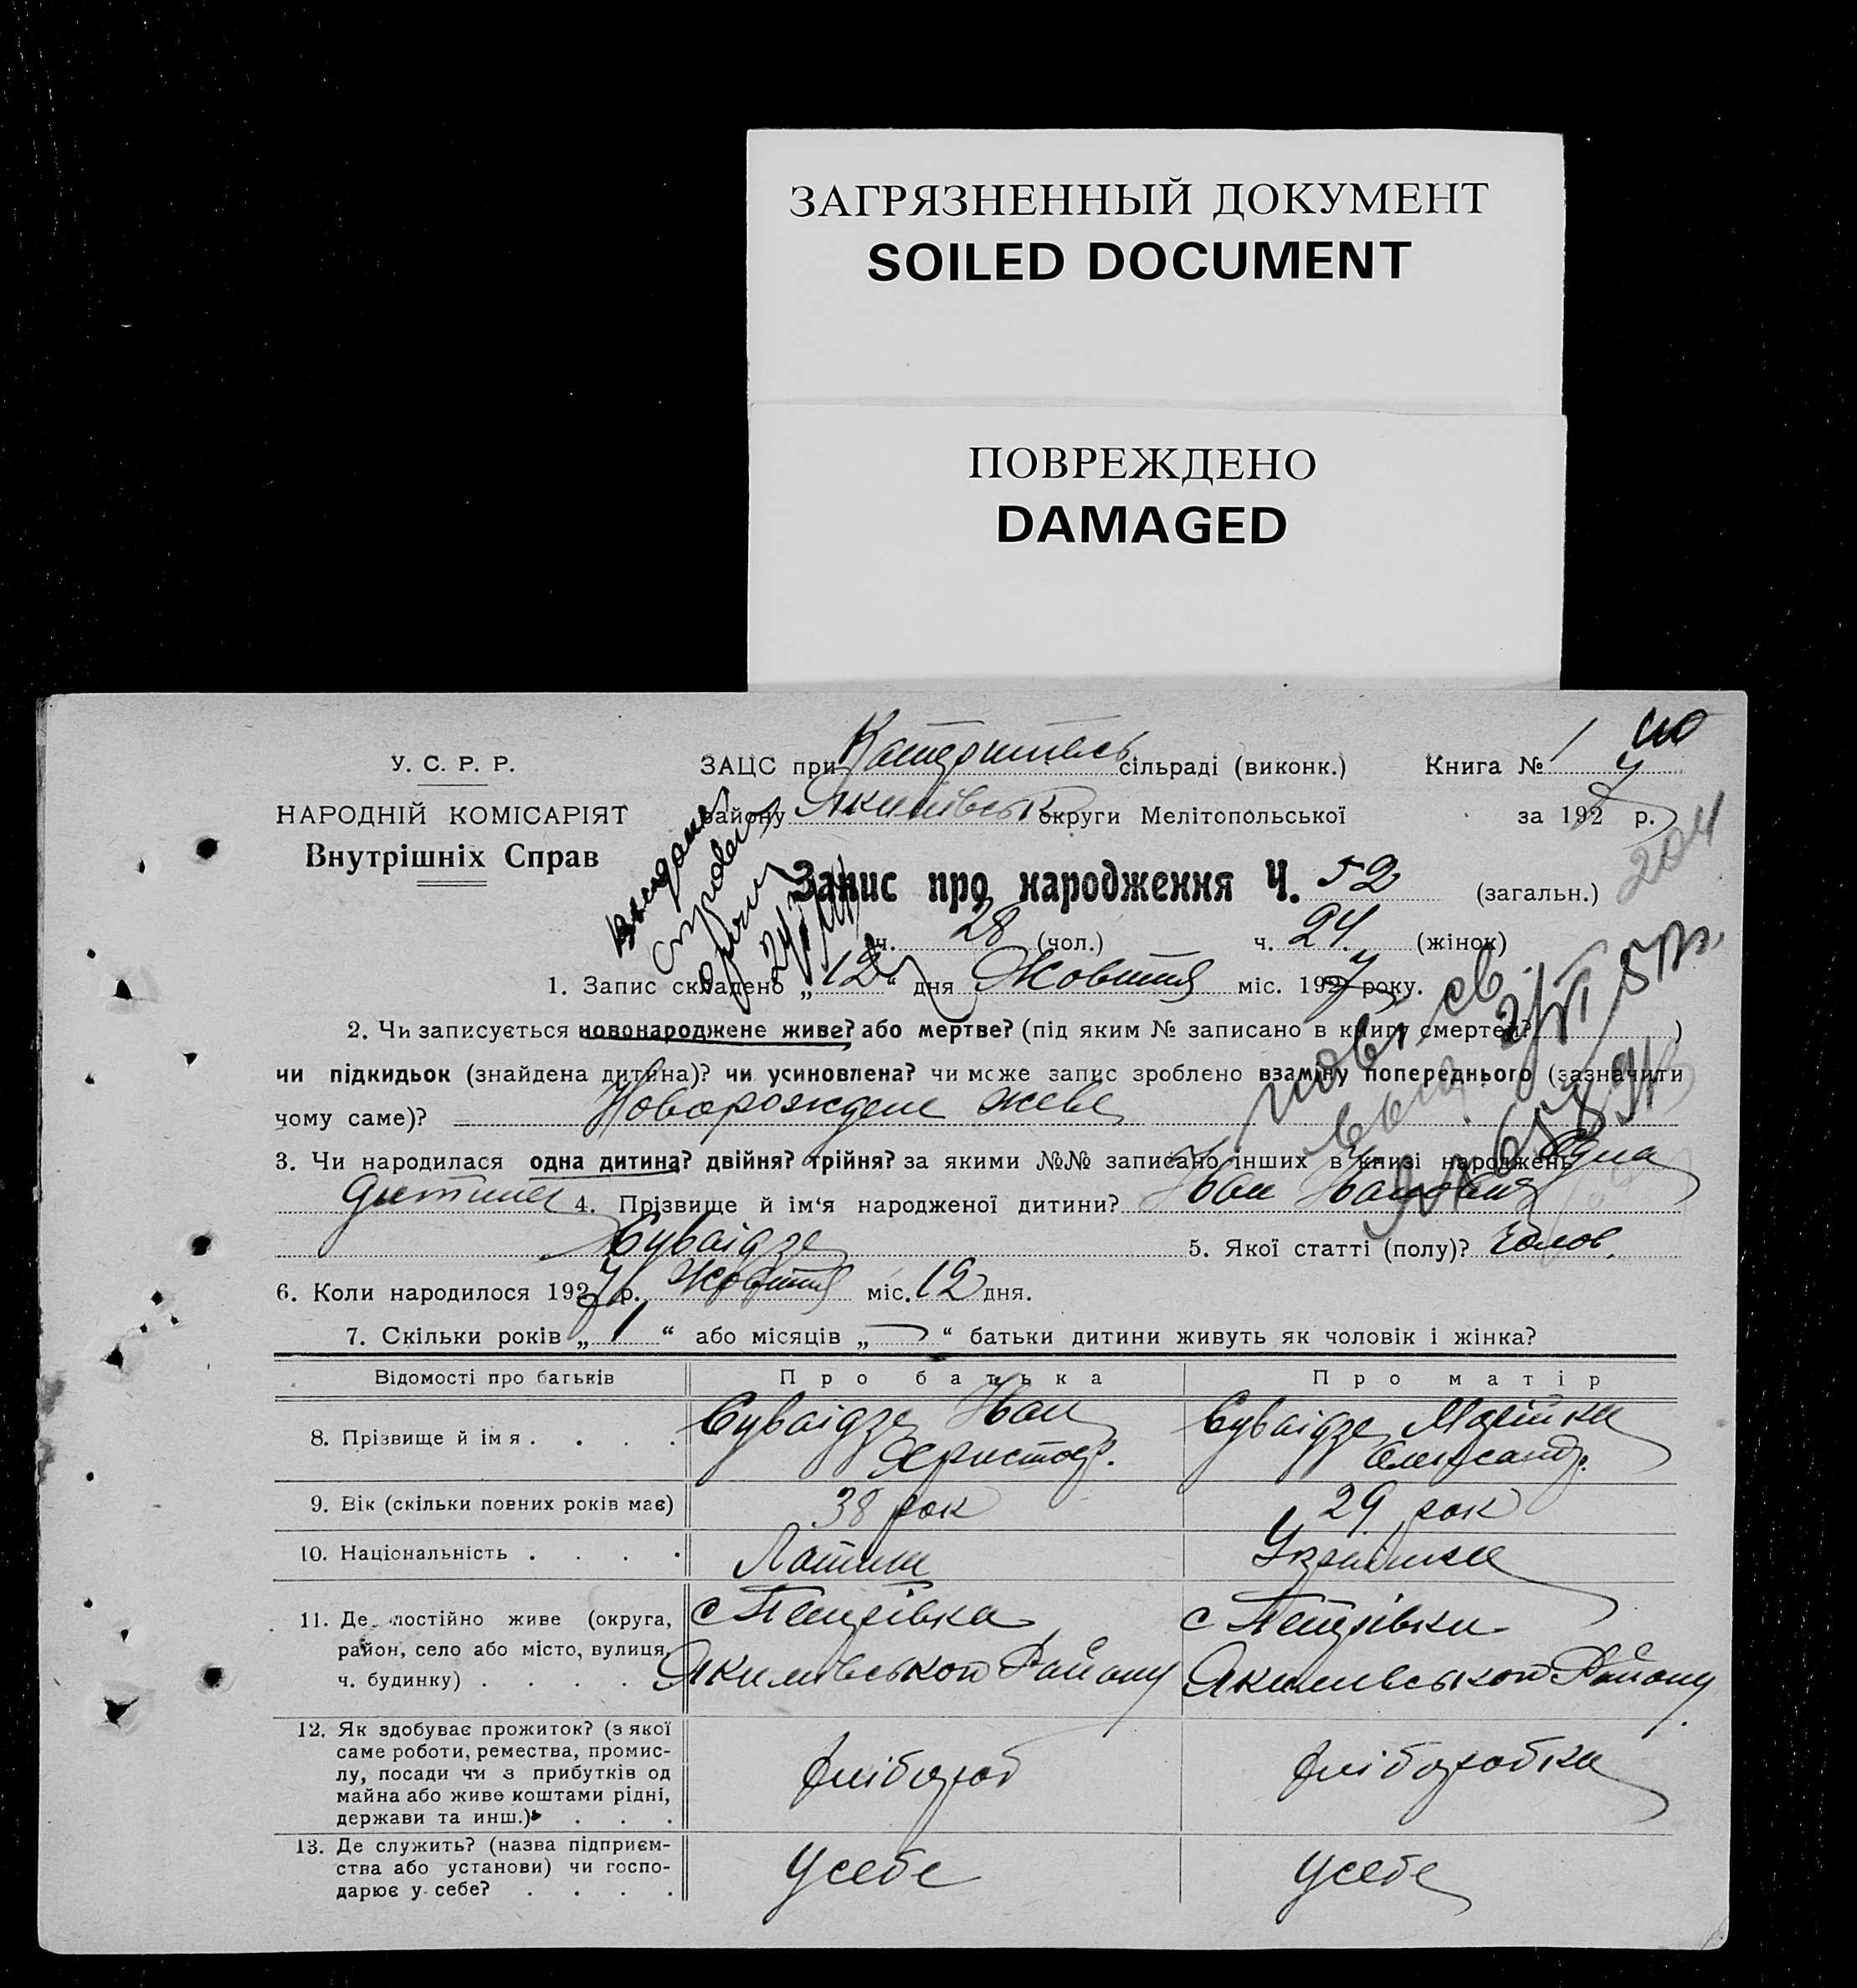 ЗАГРЯЗНЕННЫЙ ДОКУМЕНТ
SOILED DOCUMENT
ПОВРЕЖДЕНО
DAMAGED
У. С. Р. Р.
НАРОДНІЙ КОМІСАРІЯТ
Внутрішніх Справ
ЗАЦС при сільраді (виконк.) Книга № 1
району Якимівськ округи Мелітопольської за 1927 р.
204
Запис про народження Ч. 52 (загальн.)
ч. 28 (чол.) ч. 24 (жінок)
1. Запис складено „12“ дня Жовтня міс. 1927 року.
2. Чи записується новонароджене живе? або мертве? (під яким № записано в книгу смертей? )
чи підкидьок (знайдена дитина)? чи усиновлена? чи може запис зроблено взаміну попереднього (зазначити
чому саме)? Новорождене живе
3. Чи народилася одна дитина? двійня? трійня? за якими №№ записано інших в книзі народжень Одна
дитина 4. Прізвище й ім‘я народженої дитини? Іван Іванович
Суваідзе 5. Якої статті (полу)? Чолов.
6. Коли народилося 1927 р. Жовтня міс. 12 дня.
7. Скільки років „1“ або місяців „ “ батьки дитини живуть як чоловік і жінка?
Відомості про батьків Про батька Про матір
8. Прізвище й імя . . . . Суваідзе Іван Суваідзе Марійка
Христоф. Олександ.
9. Вік (скільки повних років має) 38 рок 29 рок
10. Національність . . . . Українка
11. Де постійно живе (округа, с Петрівка с Петрівка
район, село або місто, вулиця, Якимівськой Району Якимівськой Району
ч. будинку) . . . .
12. Як здобуває прожиток? (з якої
саме роботи, ремества, промис-
лу, посади чи з прибутків од хлібороб хліборобка
майна або живе коштами рідні,
держави та инш.) . . .
13. Де служить? (назва підприєм-
ства або установи) чи госпо- Усебе Усебе
дарює у себе? . . . .